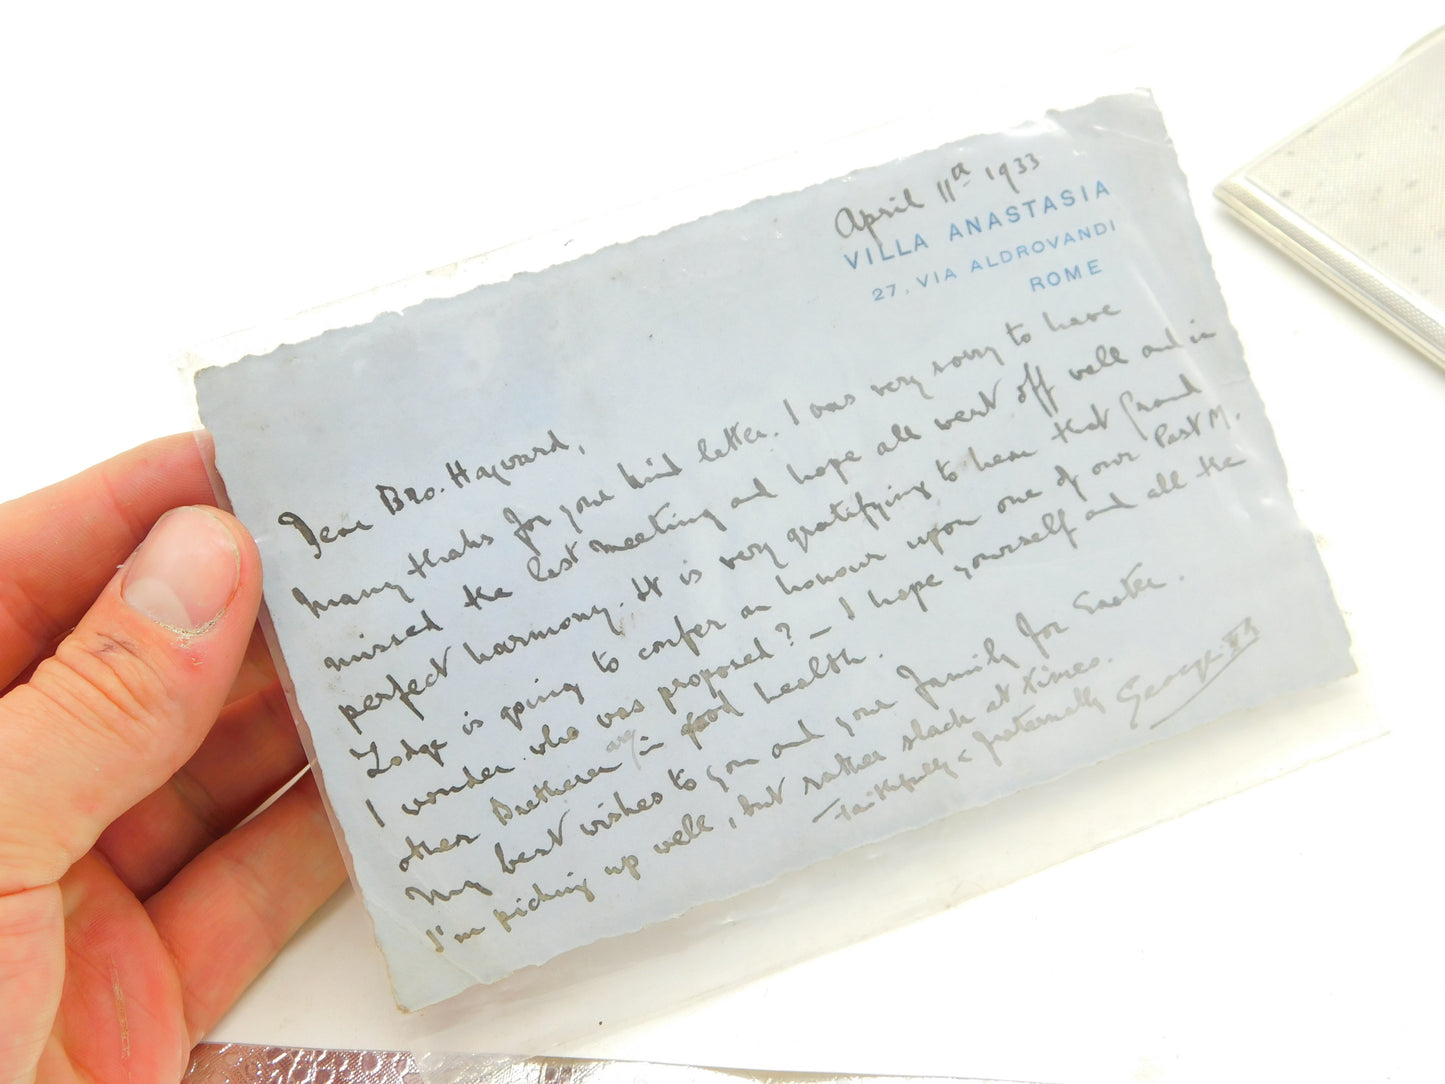 April 11th 1933
VILLA ANASTASIA
27, VIA ALDROVANDI
ROME
Dear Bro. Hayward,
Many thanks for your kind letter. I was very sorry to have
missed the last meeting and hope all went off well and in
perfect harmony. It is very gratifying to hear that Grand
Lodge is going to confer an honour upon one of our Past M.
I wonder who was proposed? – I hope yourself and all the
other Brethren are in good health.
My best wishes to you and your family for Easter.
I'm picking up well, but rather slack at times.
Faithfully & fraternally George